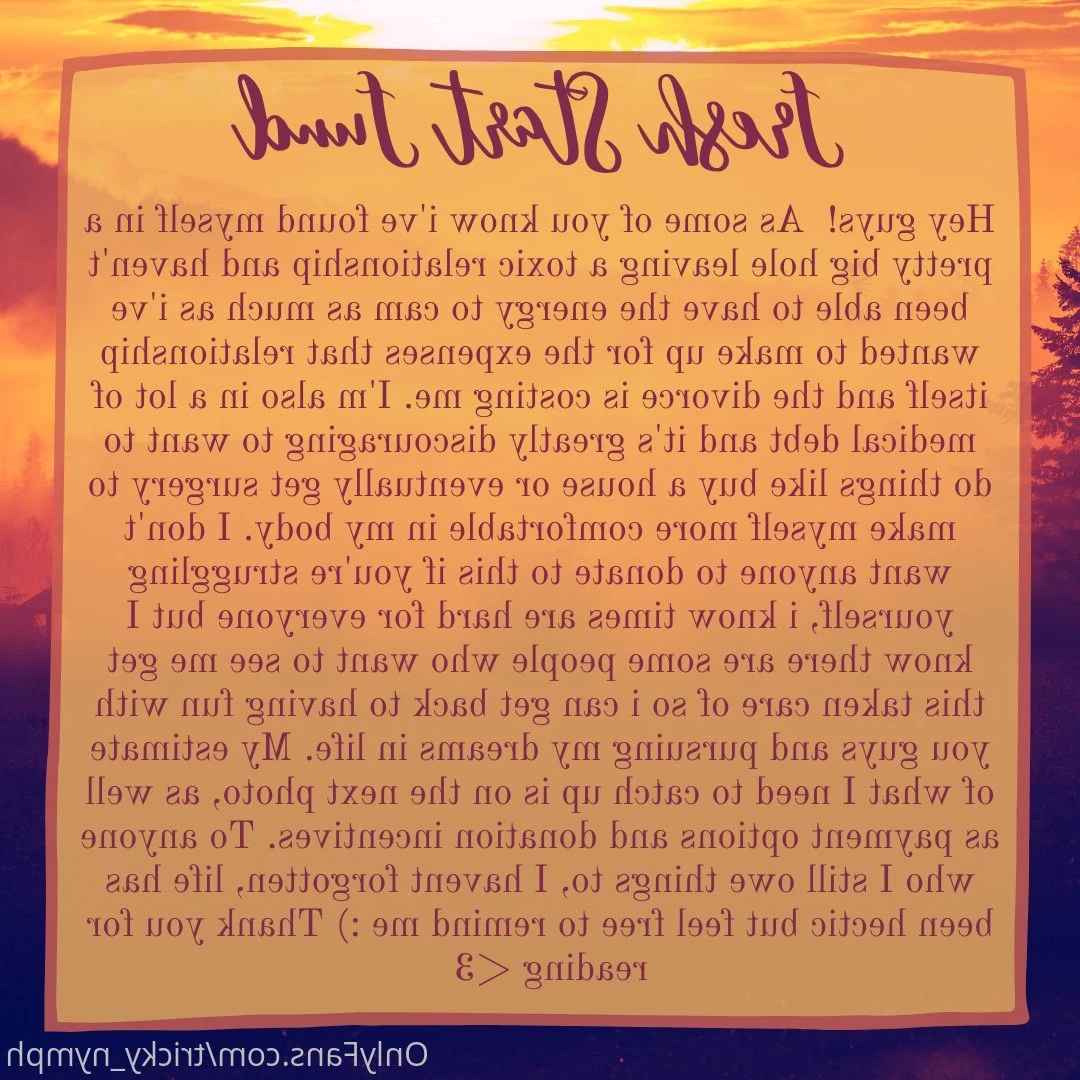 Fresh Start Fund
Hey guys!  As some of you know i've found myself in a
pretty big hole leaving a toxic relationship and haven't
been able to have the energy to cam as much as i've
wanted to make up for the expenses that relationship
itself and the divorce is costing me. I'm also in a lot of
medical debt and it's greatly discouraging to want to
do things like buy a house or eventually get surgery to
make myself more comfortable in my body. I don't
want anyone to donate to this if you're struggling
yourself, i know times are hard for everyone but I
know there are some people who want to see me get
this taken care of so i can get back to having fun with
you guys and pursuing my dreams in life. My estimate
of what I need to catch up is on the next photo, as well
as payment options and donation incentives. To anyone
who I still owe things to, I havent forgotten, life has
been hectic but feel free to remind me :) Thank you for
reading <3
OnlyFans.com/tricky_nymph